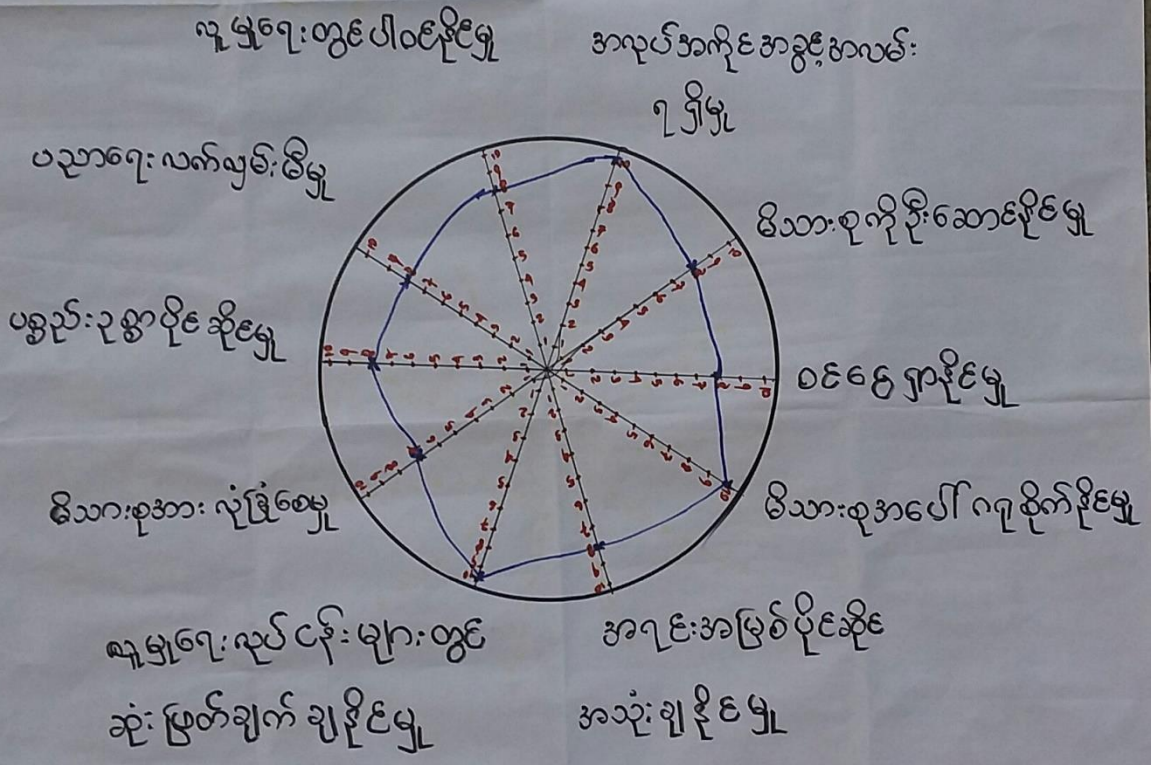 လူမှုရေးတွင်ပါဝင်နိုင်မှု
အလုပ်အကိုင်အခွင့်အလမ်း
ရရှိမှု
ပညာရေးလက်လှမ်းမီမှု
မိသားစုကိုဦးဆောင်နိုင်မှု
ပစ္စည်းဥစ္စာပိုင်ဆိုင်မှု
ဝင်ငွေရှာနိုင်မှု
မိသားစုအား လုံခြုံစေမှု
မိသားစုအပေါ် ဂရုစိုက်နိုင်မှု
လူမှုရေးလုပ်ငန်းများတွင်
ဆုံးဖြတ်ချက်ချနိုင်မှု
အရင်းအမြစ်ပိုင်ဆိုင်
အသုံးချနိုင်မှု